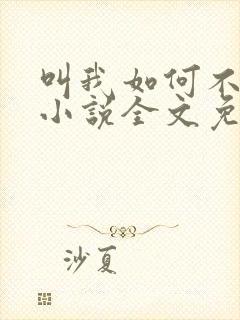 叫我如何不
小说全文免
沙夏